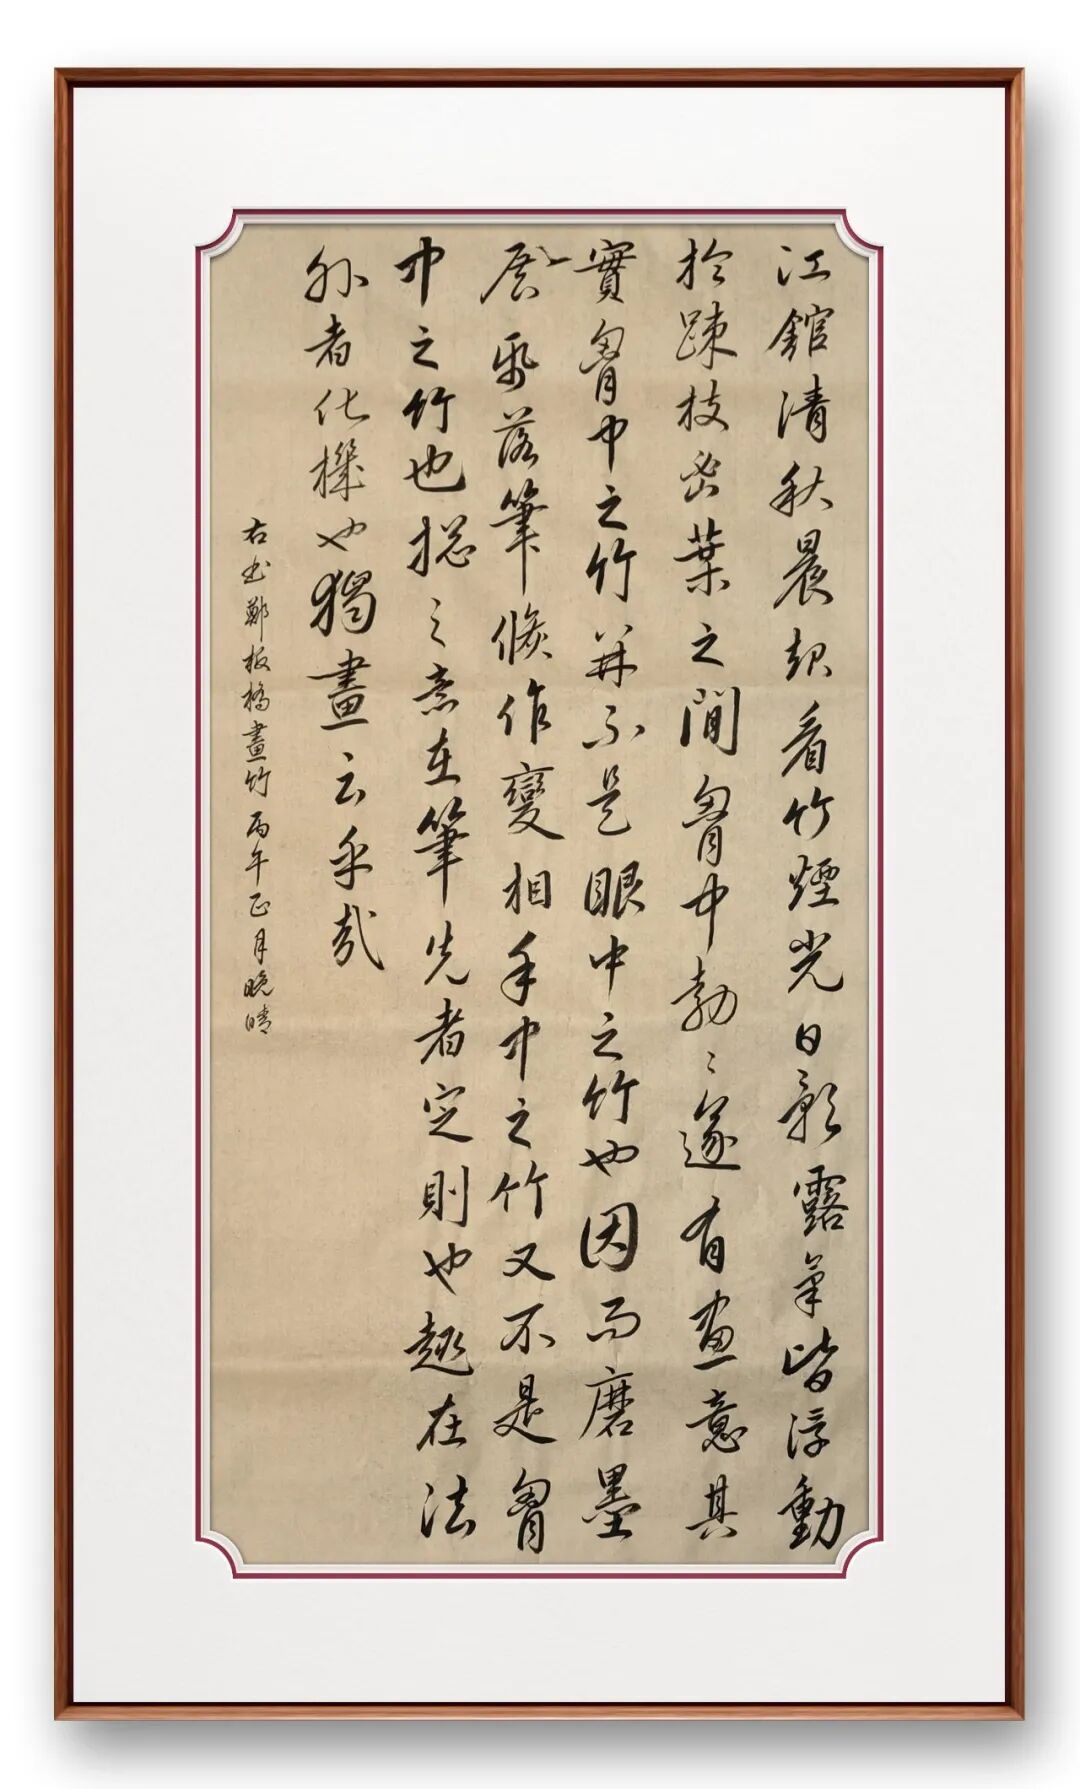 江館清秋晨起看竹煙光日影露氣皆浮動
於疎枝密葉之間胷中勃〻遂有畫意其
實胷中之竹並不是眼中之竹也因而磨墨
展紙落筆倐作變相手中之竹又不是胷
中之竹也揔之意在筆先者定則也趣在法
外者化機也獨畫云乎哉
右书鄭板橋畫竹 丙午正月晚晴